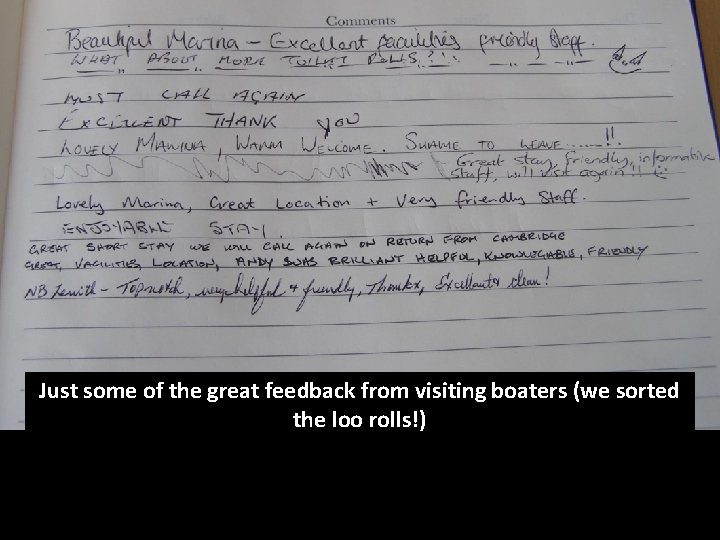 Comments
Beautiful Marina – Excellent facilities friendly Staff.
WHAT ABOUT MORE TOILET ROLLS?!!
MUST CALL AGAIN
EXCELLENT THANK YOU
LOVELY MARINA, WARM WELCOME. SHAME TO LEAVE......!!
Great stay, friendly, informative
staff, will visit again!!
Lovely Marina, Great Location + Very friendly Staff.
ENJOYABLE STAY.
GREAT SHORT STAY WE WILL CALL AGAIN ON RETURN FROM CAMBRIDGE
GREAT, VACILITIES, LOCATION, ANDY WAS BRILLIANT HELPFUL, KNOWLEGABLE, FRIENDLY
NB Zenith – Top notch, very helpful + friendly, Thanks, Excellent + clean!
Just some of the great feedback from visiting boaters (we sorted
the loo rolls!)